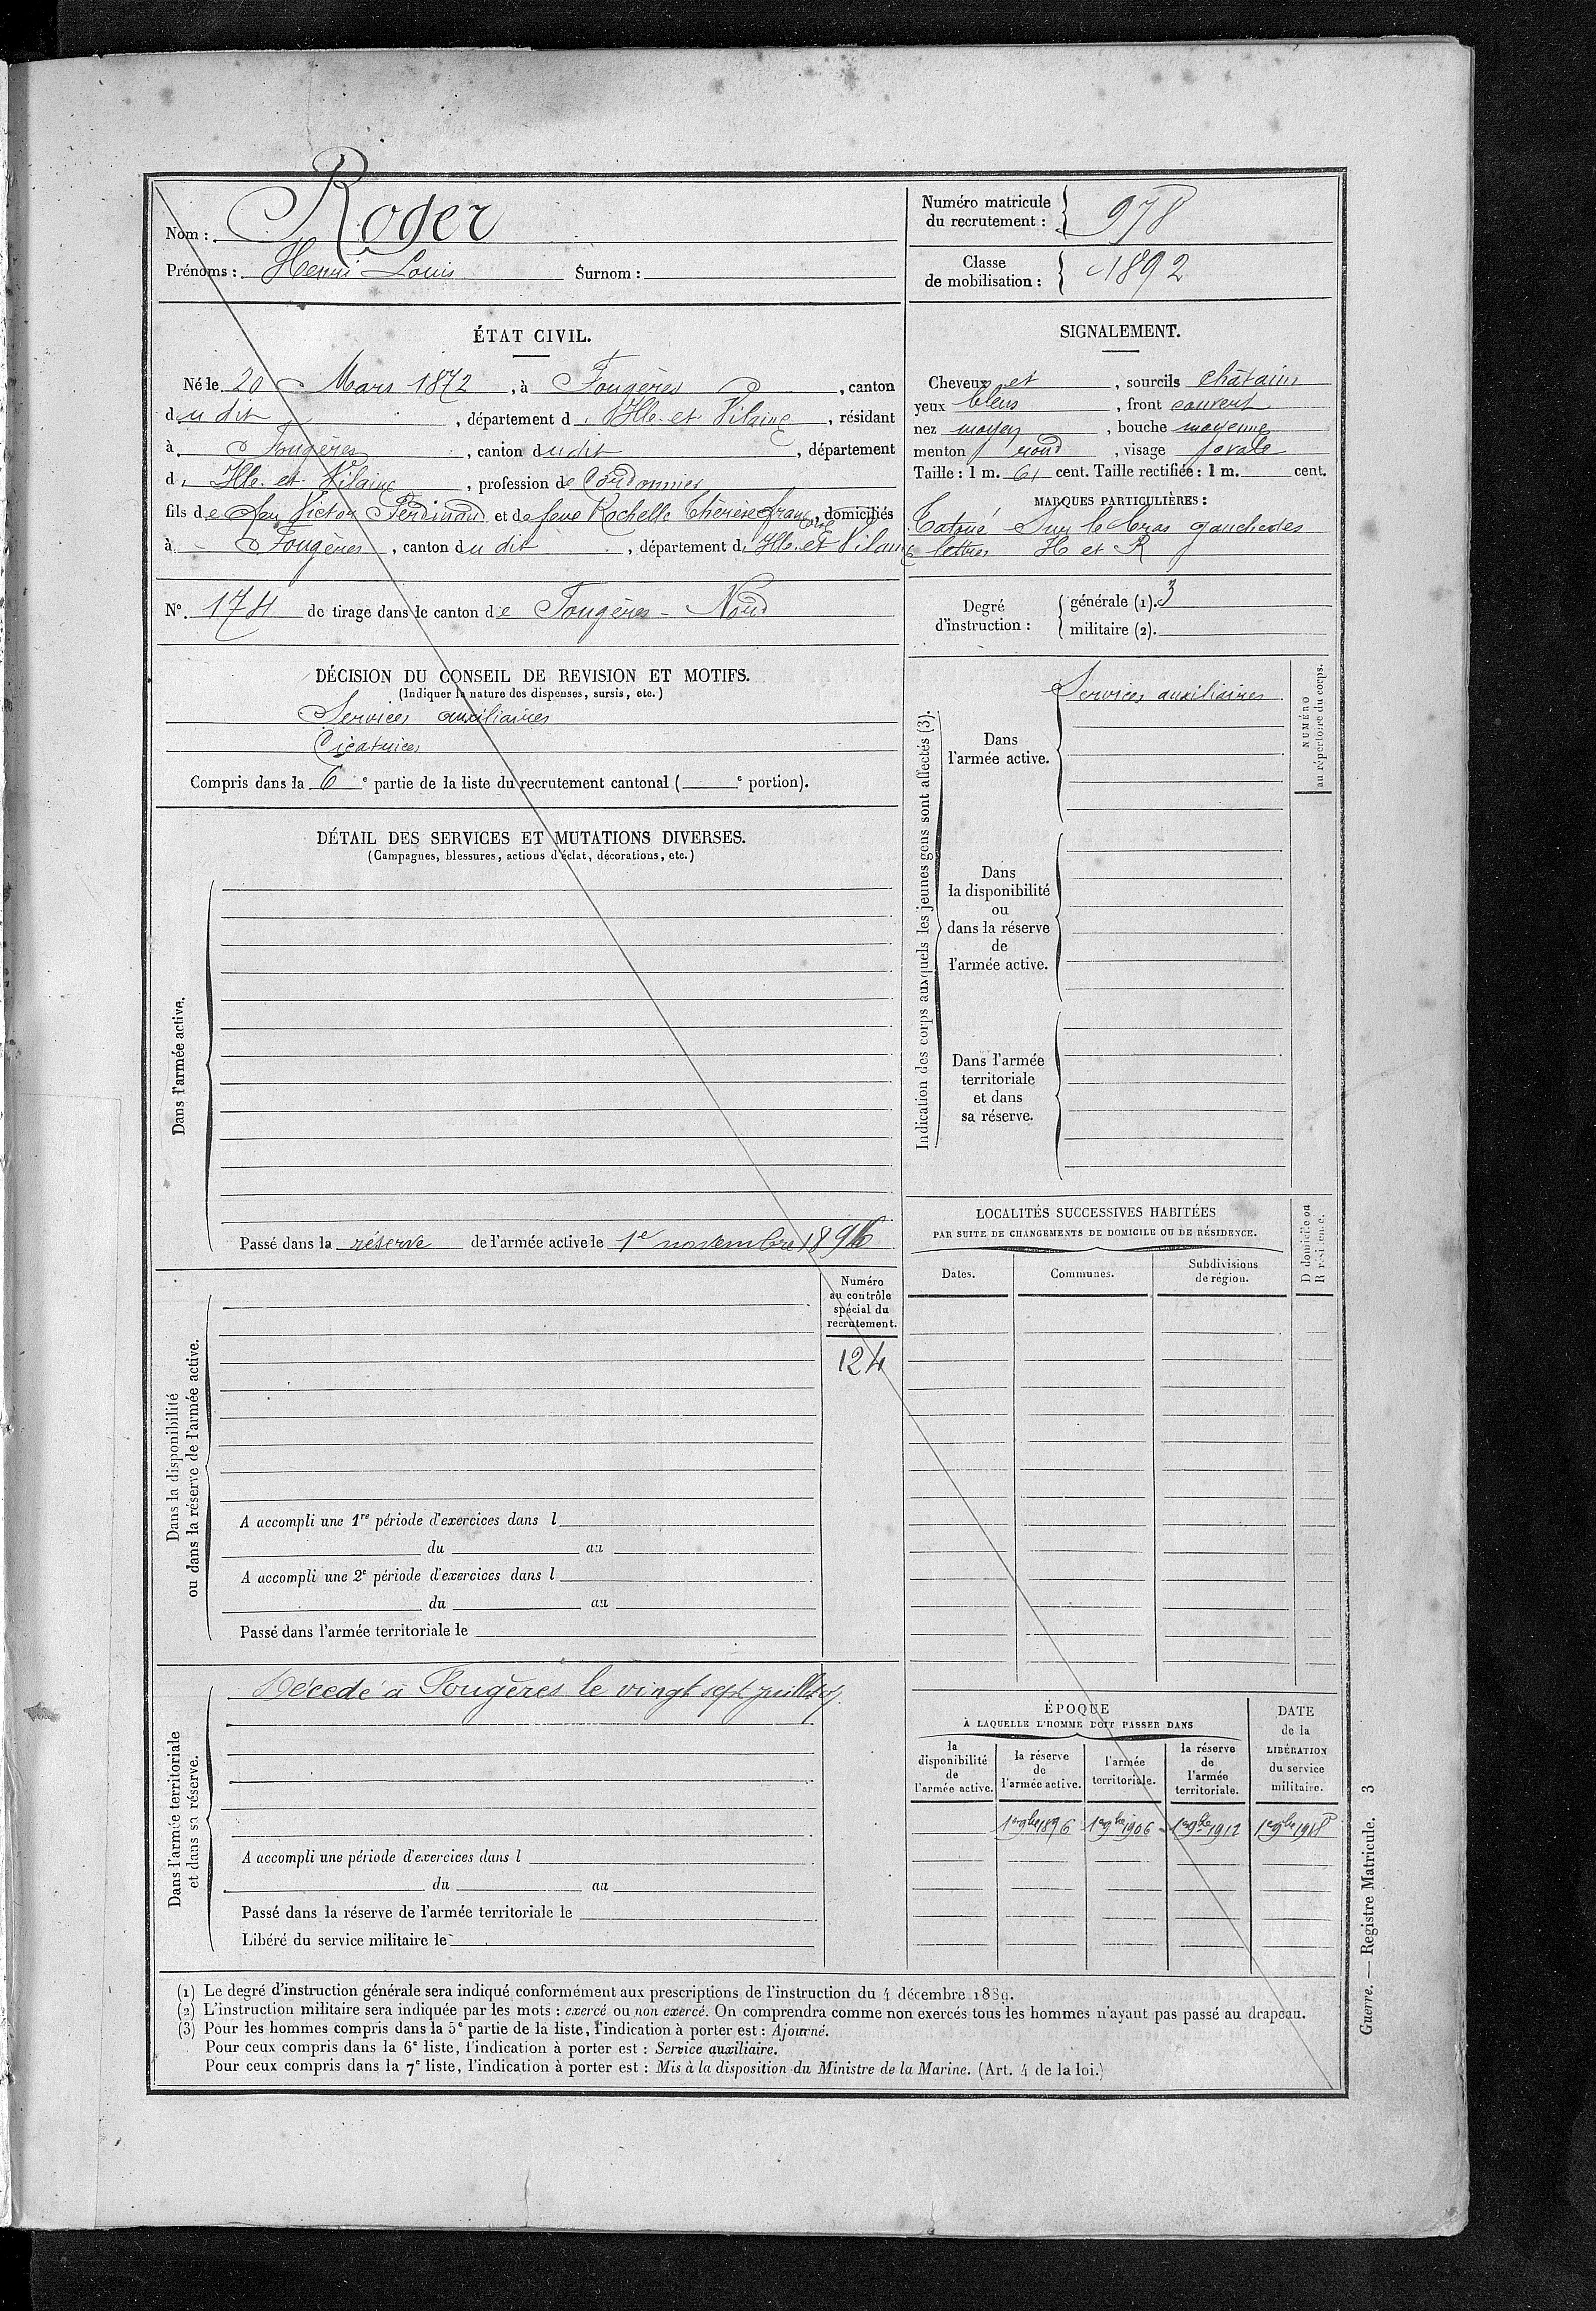 Nom : Roger
Prénoms : Henri Louis Surnom :
Numéro matricule du recrutement : 978
Classe de mobilisation : 1892
ÉTAT CIVIL.
Né le 20 Mars 1872, à Fougères, canton
du dit, département d'Ille-et-Vilaine, résidant
à Fougères, canton du dit, département
d'Ille-et-Vilaine, profession de Cordonnier
fils de feu Victor Ferdinand et de feue Rochelle Thérèse Françoise, domiciliés
à Fougères, canton du dit, département d'Ille-et-Vilaine
N° 174 de tirage dans le canton de Fougères-Nord
SIGNALEMENT.
Cheveux et, sourcils châtains
yeux bleus, front couvert
nez moyen, bouche moyenne
menton rond, visage ovale
Taille : 1 m. 61 cent. Taille rectifiée : 1 m. cent.
MARQUES PARTICULIÈRES :
Tatoué sur le bras gauche des
lettres H et R
Degré d'instruction : générale (1). 3
militaire (2).
DÉCISION DU CONSEIL DE REVISION ET MOTIFS.
(Indiquer la nature des dispenses, sursis, etc.)
Services auxiliaires
Cicatrices
Compris dans la 6e partie de la liste du recrutement cantonal ( e portion).
DÉTAIL DES SERVICES ET MUTATIONS DIVERSES.
(Campagnes, blessures, actions d'éclat, décorations, etc.)
Dans l'armée active.
Passé dans la réserve de l'armée active le 1e novembre 1896
Indication des corps auxquels les jeunes gens sont affectés (3).
NUMÉRO
au répertoire du corps.
Dans
l'armée active.
Services auxiliaires
Dans
la disponibilité
ou
dans la réserve
de
l'armée active.
Dans l'armée
territoriale
et dans
sa réserve.
LOCALITÉS SUCCESSIVES HABITÉES
PAR SUITE DE CHANGEMENTS DE DOMICILE OU DE RÉSIDENCE.
Dates.
Communes.
Subdivisions
de région.
D domicile ou
R résidence.
Dans la disponibilité
ou dans la réserve de l'armée active.
Numéro
au contrôle
spécial du
recrutement.
124
A accompli une 1re période d'exercices dans l
du au
A accompli une 2e période d'exercices dans l
du au
Passé dans l'armée territoriale le
Dans l'armée territoriale
et dans sa réserve.
Décédé à Fougères le vingt sept juillet
A accompli une période d'exercices dans l
du au
Passé dans la réserve de l'armée territoriale le
Libéré du service militaire le
ÉPOQUE
À LAQUELLE L'HOMME DOIT PASSER DANS
la
disponibilité
de
l'armée active.
la réserve
de
l'armée active.
l'armée
territoriale.
la réserve
de
l'armée
territoriale.
DATE
de la
LIBÉRATION
du service
militaire.
1er 9bre 1896
1er 9bre 1906
1er 9bre 1912
1er 9bre 1918
(1) Le degré d'instruction générale sera indiqué conformément aux prescriptions de l'instruction du 4 décembre 1889.
(2) L'instruction militaire sera indiquée par les mots : exercé ou non exercé. On comprendra comme non exercés tous les hommes n'ayant pas passé au drapeau.
(3) Pour les hommes compris dans la 5e partie de la liste, l'indication à porter est : Ajourné.
Pour ceux compris dans la 6e liste, l'indication à porter est : Service auxiliaire.
Pour ceux compris dans la 7e liste, l'indication à porter est : Mis à la disposition du Ministre de la Marine. (Art. 4 de la loi.)
Guerre. — Registre Matricule. 3